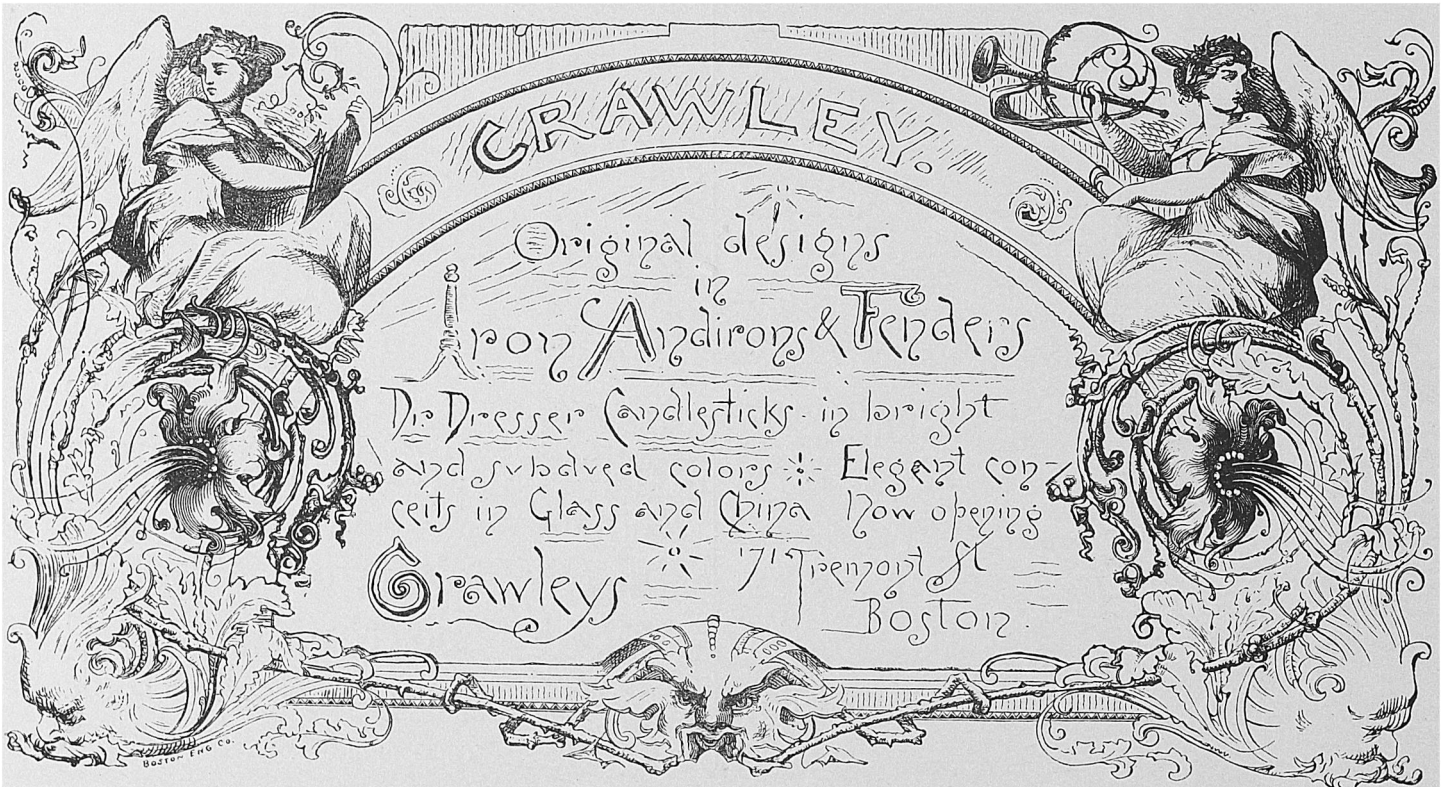 CRAWLEY.
Original designs
in
Iron Andirons & Fenders
Dr. Dresser Candlesticks. in bright
and subdued colors Elegant con-
ceits in Glass and China Now opening
Crawleys 171 Tremont St
Boston.
BOSTON ENG CO.